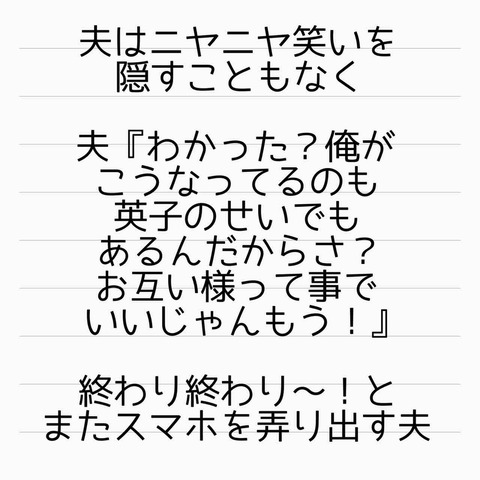 夫はニヤニヤ笑いを
隠すこともなく
夫『わかった？俺が
こうなってるのも
英子のせいでも
あるんだからさ？
お互い様って事で
いいじゃんもう！』
終わり終わり〜！と
またスマホを弄り出す夫